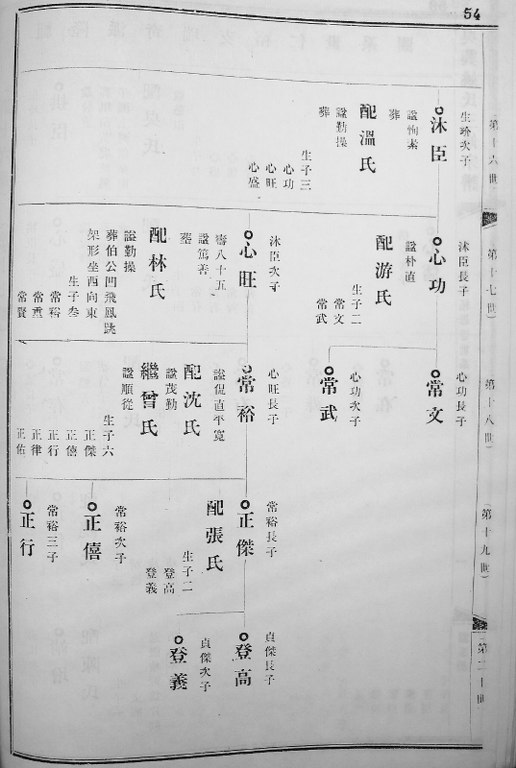 54
第十六世
沐臣
生瑜次子
諡恂素
葬
配溫氏
諡勤操
葬
生子三
心功
心旺
心盛
第十七世
心功
沐臣長子
諡朴直
配游氏
生子二
常文
常武
心旺
沐臣次子
壽八十五
諡篤善
塟
配林氏
諡勤操
葬伯公凹飛鳳跳
架形坐西向東
生子叁
常裕
常重
常賢
第十八世
常文
心功長子
常武
心功次子
常裕
心旺長子
諡侃直平寬
配沈氏
諡茂勤
繼曾氏
諡順從
生子六
正傑
正僖
正行
正律
正佑
第十九世
正傑
常裕長子
配張氏
生子二
登高
登義
正僖
常裕次子
正行
常裕三子
第二十世
登高
貞傑長子
登義
貞傑次子